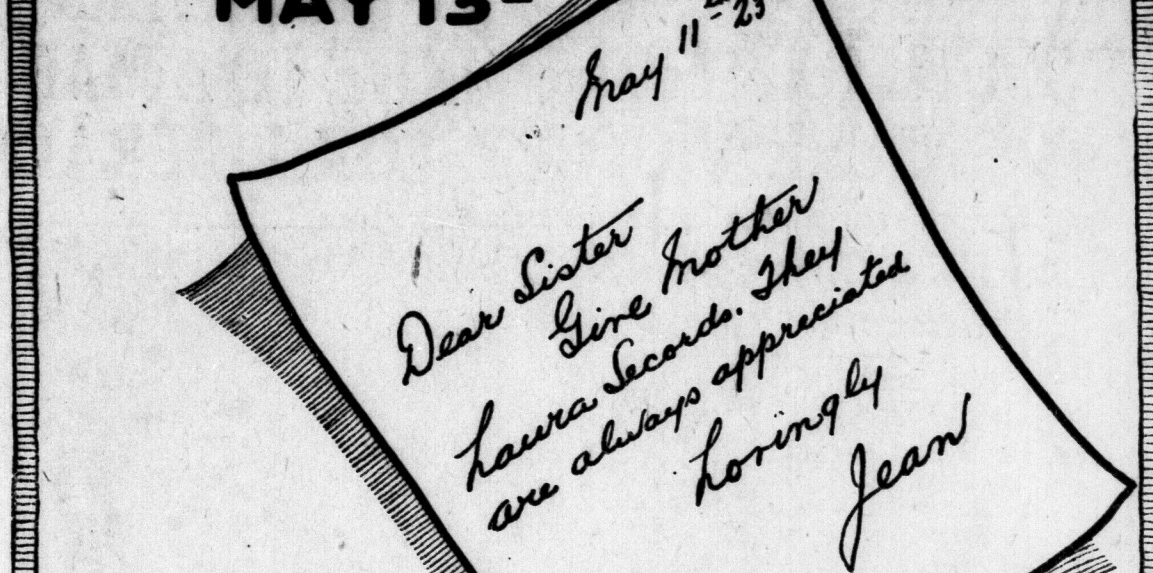 MAY 13th
May 11th 23
Dear Sister
Give Mother
Laura Secords. They
are always appreciated
Lovingly
Jean